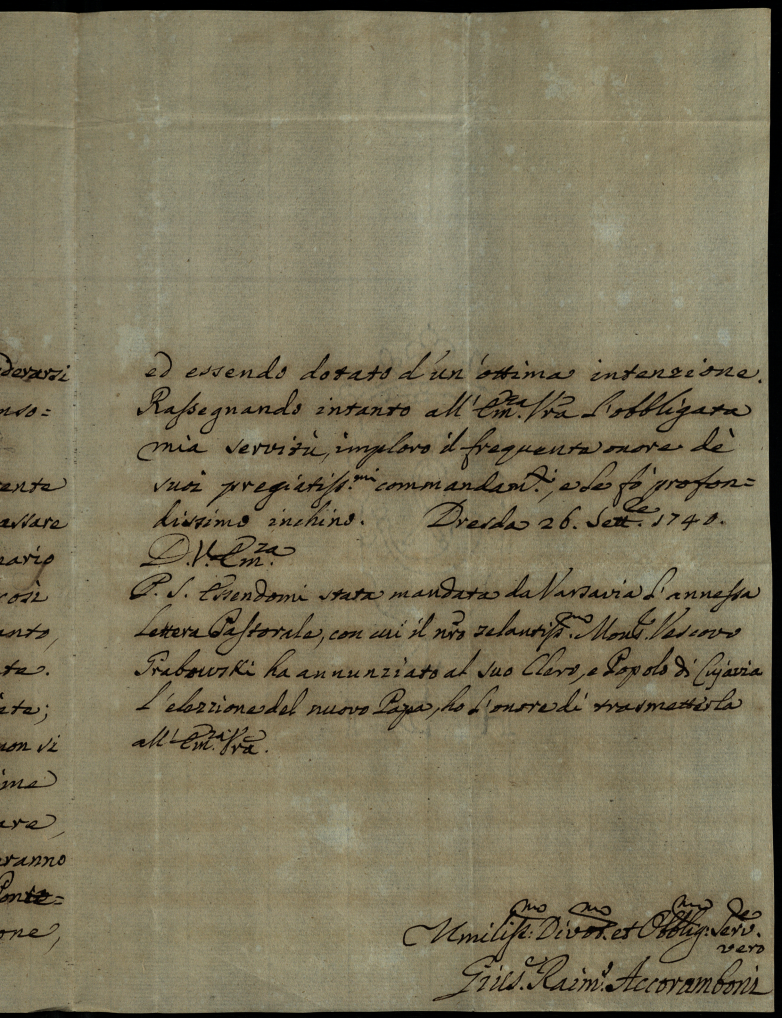 derarsi
nso=
ente
assare
nario
così
anto,
te.
ete;
non si
ime
are,
eranno
Ponte=
one,
ed essendo dotato d'un'ottima intenzione.
Rassegnando intanto all'Em.za Vra l'obbligata
mia servitù, imploro il frequente onore dè
suoi pregiatiss.mi commandam.ti, e Le fò profon=
dissimo inchino. Dresda 26. Sett.e 1740.
D.V. Em.za
P. S. Essendomi stata mandata da Varsavia l'annessa
Lettera Pastorale, con cui il nro zelantiss.mo Mons.r Vescovo
Grabowski ha annunziato al suo Clero, e Popolo di Cujavia
l'elezzione del nuovo Papa, ho l'onore di trasmetterla
all'Em.za Vra.
Umiliss.mo Divot.mo et Obblig.mo Serv.de
vero
Gius.e Raim.o Accoramboni